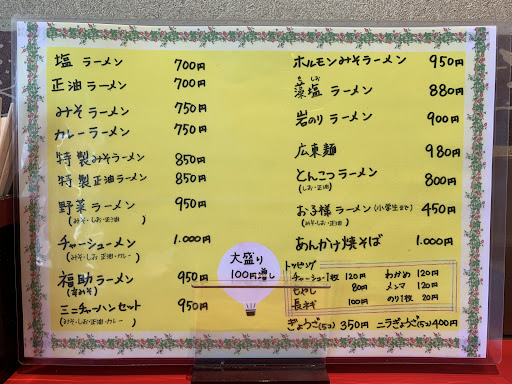 塩 ラーメン 700円
正油 ラーメン 700円
みそ ラーメン 750円
カレー ラーメン 750円
特製みそラーメン 850円
特製正油ラーメン 850円
野菜 ラーメン 950円
(みそ・しお・正油 )
チャーシューメン 1.000円
(みそ・しお 正油・カレー )
福助 ラーメン 950円
(辛みそ)
ミニチャーハンセット 950円
(みそ・しお・正油・カレー )
大盛り
100円増し
ホルモンみそラーメン 950円
もしお
藻塩 ラーメン 880円
岩のり ラーメン 900円
広東麺 980円
とんこつラーメン 800円
(しお・正油)
お子様 ラーメン(小学生まで) 450円
(みそ・しお・正油 )
あんかけ焼そば 1.000円
トッピング
チャーシュー1枚 120円 わかめ 120円
もやし 80円 メンマ 120円
長ネギ 100円 のり1枚 20円
ぎょうざ(5コ) 350円 ニラぎょうざ(5コ)400円